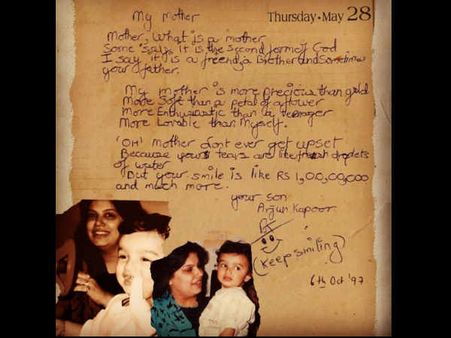 My Mother
Thursday • May 28
Mother, What is a mother
Some says it is the second form of God
I say it is a friend, a Brother and Sometimes
your father.
My mother is more precious than gold
More Soft than a petal of a flower
More Enthusiastic than a teenager
More Lovable than Myself.
'OH' Mother dont ever get upset
Because your tears are like fresh droplets
of water
But your smile is like RS 1,00,00,000
and much more.
your son
Arjun Kapoor
(Keep smiling)
6th Oct '97